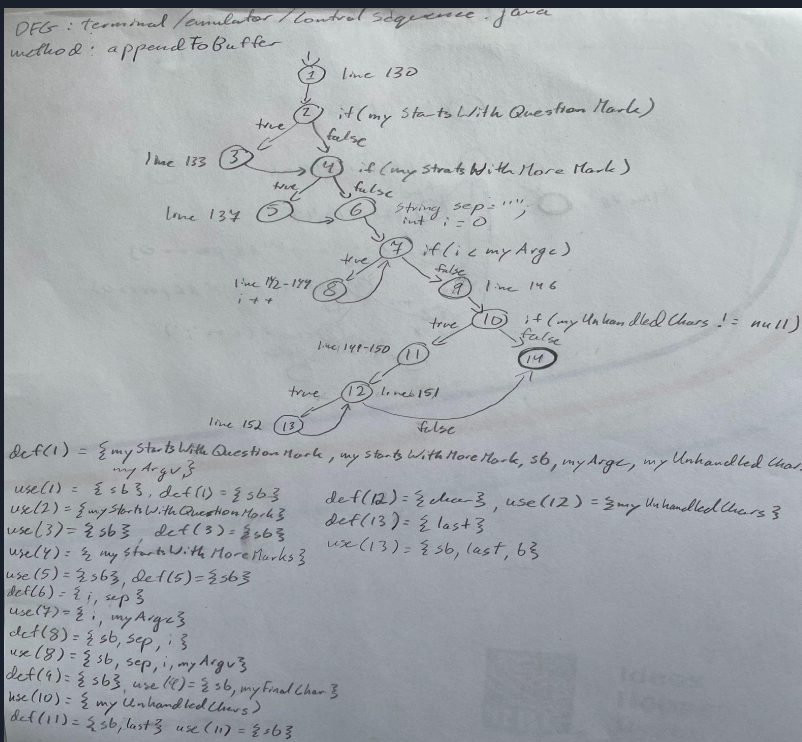 DFG : terminal/emulator/Control Sequence.java
method : appendToBuffer
1 line 130
2 if(my Starts With Question Mark)
true
false
line 133 3
4 if(my Strats With More Mark)
true
false
line 137 5
6 String sep = "";
int i = 0
7 if(i < my Argc)
true
false
line 142-144 8
i++
9 line 146
true 10 if(my Unhandled Chars != null)
false
line 149-150 11
14
true 12 line 151
line 152 13
false
def(1) = {my Starts With Question Mark, my starts With More Mark, sb, my Argc, my Unhandled Char
my Argv}
use(1) = {sb}, def(1) = {sb}
use(2) = {my Starts With Question Mark}
use(3) = {sb}, def(3) = {sb}
use(4) = {my Starts With More Marks}
use(5) = {sb}, def(5) = {sb}
def(6) = {i, sep}
use(7) = {i, my Argc}
def(8) = {sb, sep, i}
use(8) = {sb, sep, i, my Argv}
def(9) = {sb}, use(9) = {sb, my Final Char}
use(10) = {my Unhandled Chars}
def(11) = {sb, last} use(11) = {sb}
def(12) = { }, use(12) = {my Unhandled Chars}
def(13) = {last}
use(13) = {sb, last, b}